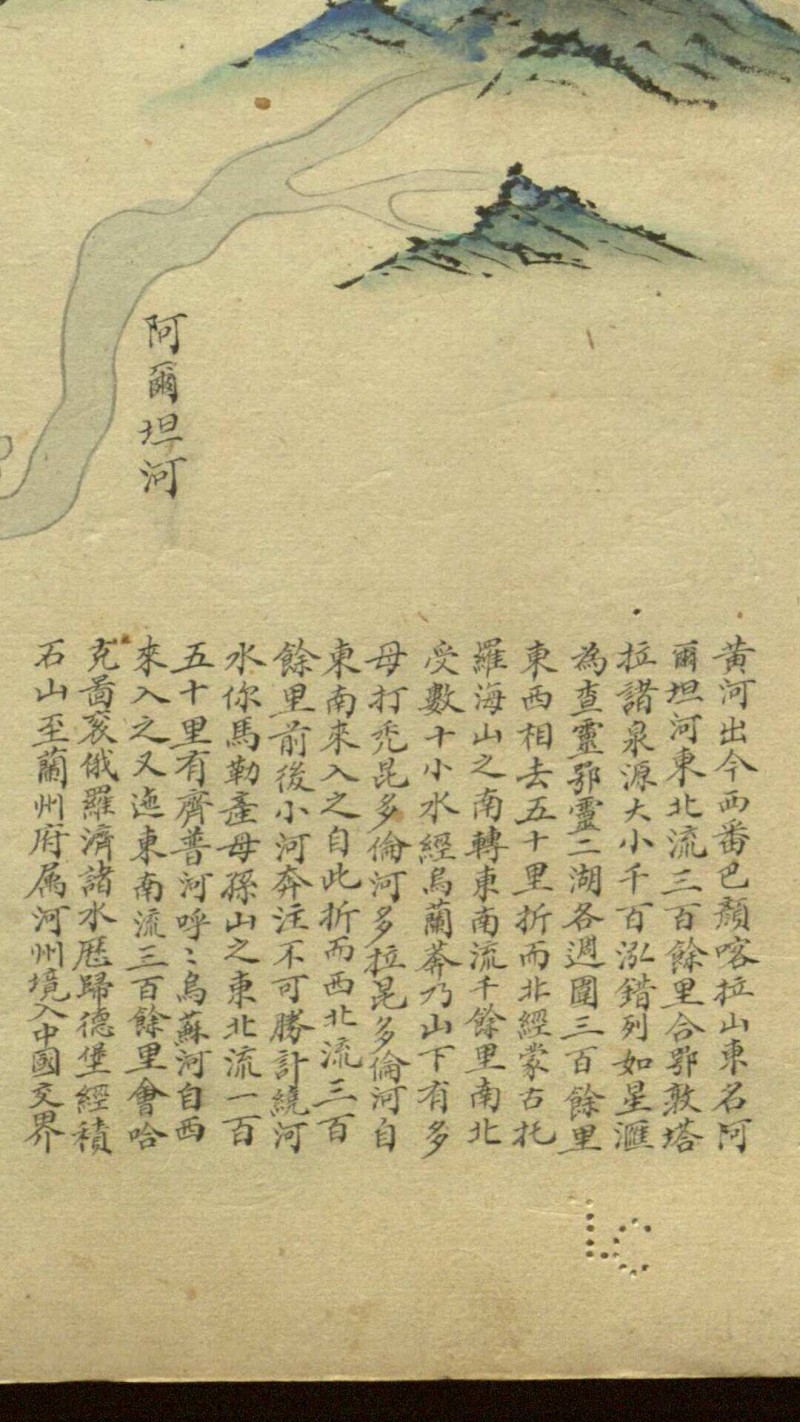 阿爾坦河
黃河出今西番巴顏喀拉山東名阿
爾坦河東北流三百餘里合鄂敦塔
拉諸泉源大小千百泓錯列如星滙
為查靈鄂靈二湖各週圍三百餘里
東西相去五十里折而北經蒙古托
羅海山之南轉東南流千餘里南北
受數十小水經烏蘭莾乃山下有多
母打禿昆多倫河多拉昆多倫河自
東南來入之自此折而西北流三百
餘里前後小河奔注不可勝計繞河
水你馬勒產母孫山之東北流一百
五十里有齊普河呼〻烏蘇河自西
來入之又迤東南流三百餘里會哈
克圖袞俄羅濟諸水歷歸德堡經積
石山至蘭州府属河州境入中國交界